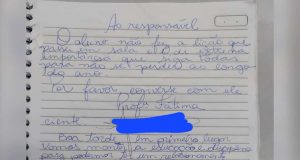 Ao responsável
O aluno não fez a lição que
passei em sala. É de extrema
importância que siga todas
para não se perder ao longo
do ano.
Por favor, converse com ele
Profª Fátima
ciente
Boa tarde, em primeiro lugar
Vamos manter a educação e disciplina
para podermos ter um relacionamento